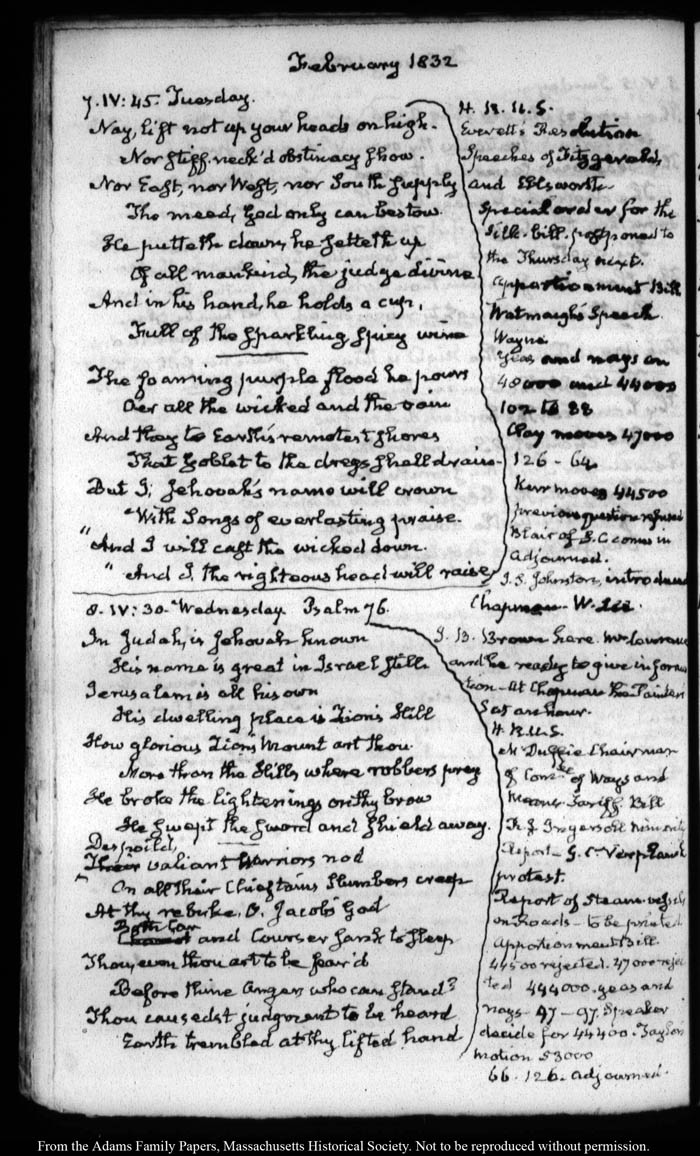 February 1832
7. IV: 45. Tuesday.
Nay, lift not up your heads on high.
Nor stiff-neck'd obstinacy show.
Nor East, nor West, nor South supply
The meed, God only can bestow.
He putteth down, he setteth up
Of all mankind, the judge divine
And in his hand, he holds a cup,
Full of the sparkling spicy wine
The foaming purple flood he pours
Oer all the wicked and the vain
And they to Earth's remotest shores
That Goblet to the dregs shall drain.
But I; Jehovah's name will crown
"With Songs of everlasting praise.
"And I will cast the wicked down.
"And I, the righteous head will raise
H. R. U. S.
Everett's Resolution
Speeches of Fitzgerald,
and Ellsworth.
Special order for the
Silk-bill postponed to
the Thursday next.
Apportionment Bill
Watmough's Speech
Wayne
Yeas and nays on
48000 and 44000
102 to 88
Clay moves 47000
126 - 64.
Kerr moves 44500
previous question refused
Blair of S.C comes in
Adjourned.
J. S. Johnston, introduces
Chapman - W. Lee.
8. IV: 30. Wednesday Psalm 76.
In Judah, is Jehovah known
His name is great in Israel still
Jerusalem is all his own
His dwelling place is Zion's Hill
How glorious Zion's Mount art thou.
More than the Hills, where robbers prey
He broke the lightenings on thy brow
He swept the sword and shield away.
Despoil'd,
Their valiant Warriors nod
On all their Chieftains Slumbers creep
At thy rebuke, O, Jacob's God
Both Car
Chariot and Courser sank to sleep
Thou, even thou art to be fear'd
Before thine Anger, who can stand?
Thou causedst judgment to be heard
Earth trembled at thy lifted hand
J. B. Brown here. Mr Lawrence
and he ready to give informa
tion - At Chapman the Painters
Sat an hour.
H. R. U. S.
McDuffie Chairman
of Comtee of Ways and
Means Tariff Bill
R. J. Ingersoll minority
Report - G. C. Verplanck
protest.
Report of Steam vessels
on Roads - to be printed
Apportionment Bill.
44500 rejected. 47000 rejec
ted 444000. yeas and
nays - 97 - 97. Speaker
decide for 44400. Taylor
motion 53000
66. 126. adjourned.
From the Adams Family Papers, Massachusetts Historical Society. Not to be reproduced without permission.